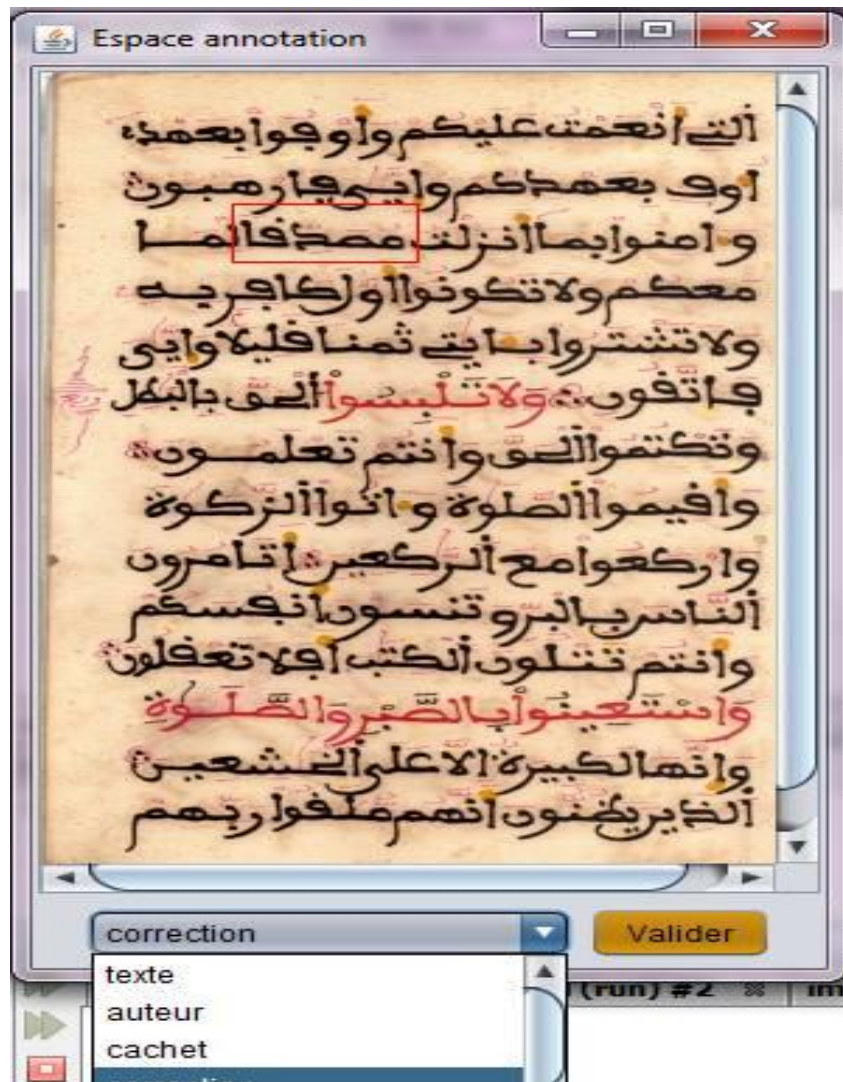 Espace annotation
ألتے أنعمت عليكم وأوفوا بعهدے
أوف بعهدكم وإيـى فارهبون
وءامنوا بما أنزلت مصدقا لمـا
معكم ولا تكونوا أول كافر بـه
ولا تشتروا بـايتے ثمنـا قليلا وإيـى
فـاتقون وَلاَ تَـلْبِسُواْ ألحـق بالبطل
وتكتموا ألحـق وأنتم تعلمـون
وأقيمـوا ألصلوة وءاتـوا ألزكـوة
واركعوا مع ألـركعين أتـامرون
ألنـاس بـالبر وتنسـون أنفسكم
وأنتم تتلون ألكتب أفلا تعقلون
وَاسْتَعِينُواْ بِـالصَّبْرِ وَالصَّلَـوٰةِ
وإنهـا لكبيـرة الا على ألخشعيـن
ألذين يظنون أنهم ملقوا ربهم
correction
Valider
texte
auteur
cachet
(run) #2
im